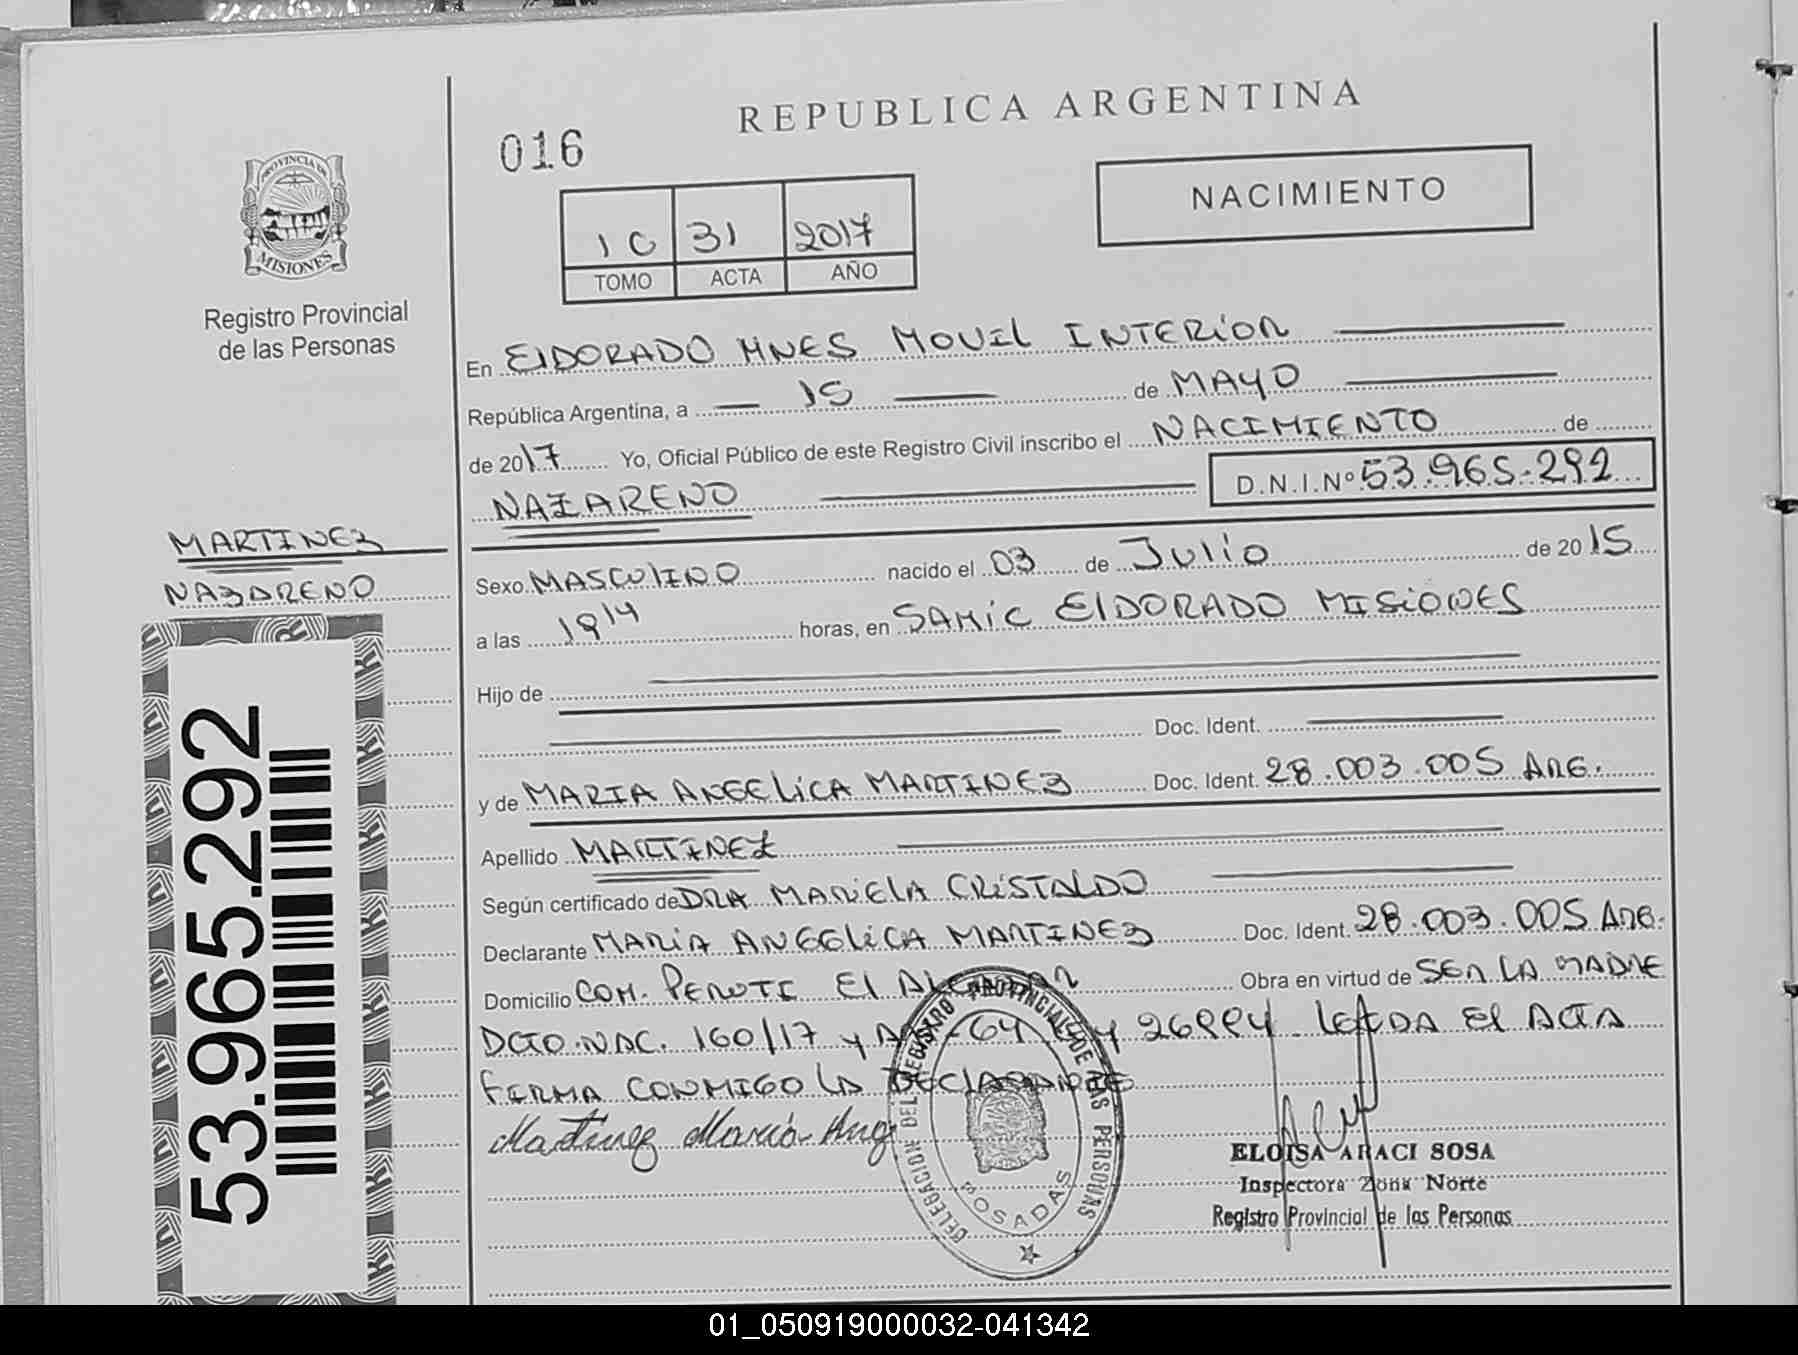 REPUBLICA ARGENTINA
016
NACIMIENTO
PROVINCIA DE
MISIONES
1C 31 2017
TOMO ACTA AÑO
Registro Provincial
de las Personas
En ElDORADO MNES MOVIL INTERIOR
República Argentina, a 15 de MAYO
de 2017 Yo, Oficial Público de este Registro Civil inscribo el NACIMIENTO de
NAZARENO D.N.I.Nº 53.965.292
MARTINEZ
NAZARENO
Sexo MASCULINO nacido el 03 de Julio de 2015
a las 1914 horas, en SAMIC ElDORADO MISIONES
Hijo de
Doc. Ident.
y de MARIA ANGELICA MARTINEZ Doc. Ident. 28.003.005 ARG.
Apellido MARTINEZ
Según certificado de DRA MARIELA CRISTALDO
Declarante MARIA ANGELICA MARTINEZ Doc. Ident. 28.003.005 ARG.
Domicilio COM. PERUTI El Obra en virtud de SER LA MADRE
DCTO.NAC. 160/17 y 64 26994 LEIDA El ACTA
FIRMA CONMIGO LA DECLARANTE
Martinez María Ang
DELEGACION DEL REGISTRO PROVINCIAL DE LAS PERSONAS
POSADAS
ELOISA ARACI SOSA
Inspectora Zona Norte
Registro Provincial de las Personas
53.965.292
01_050919000032-041342